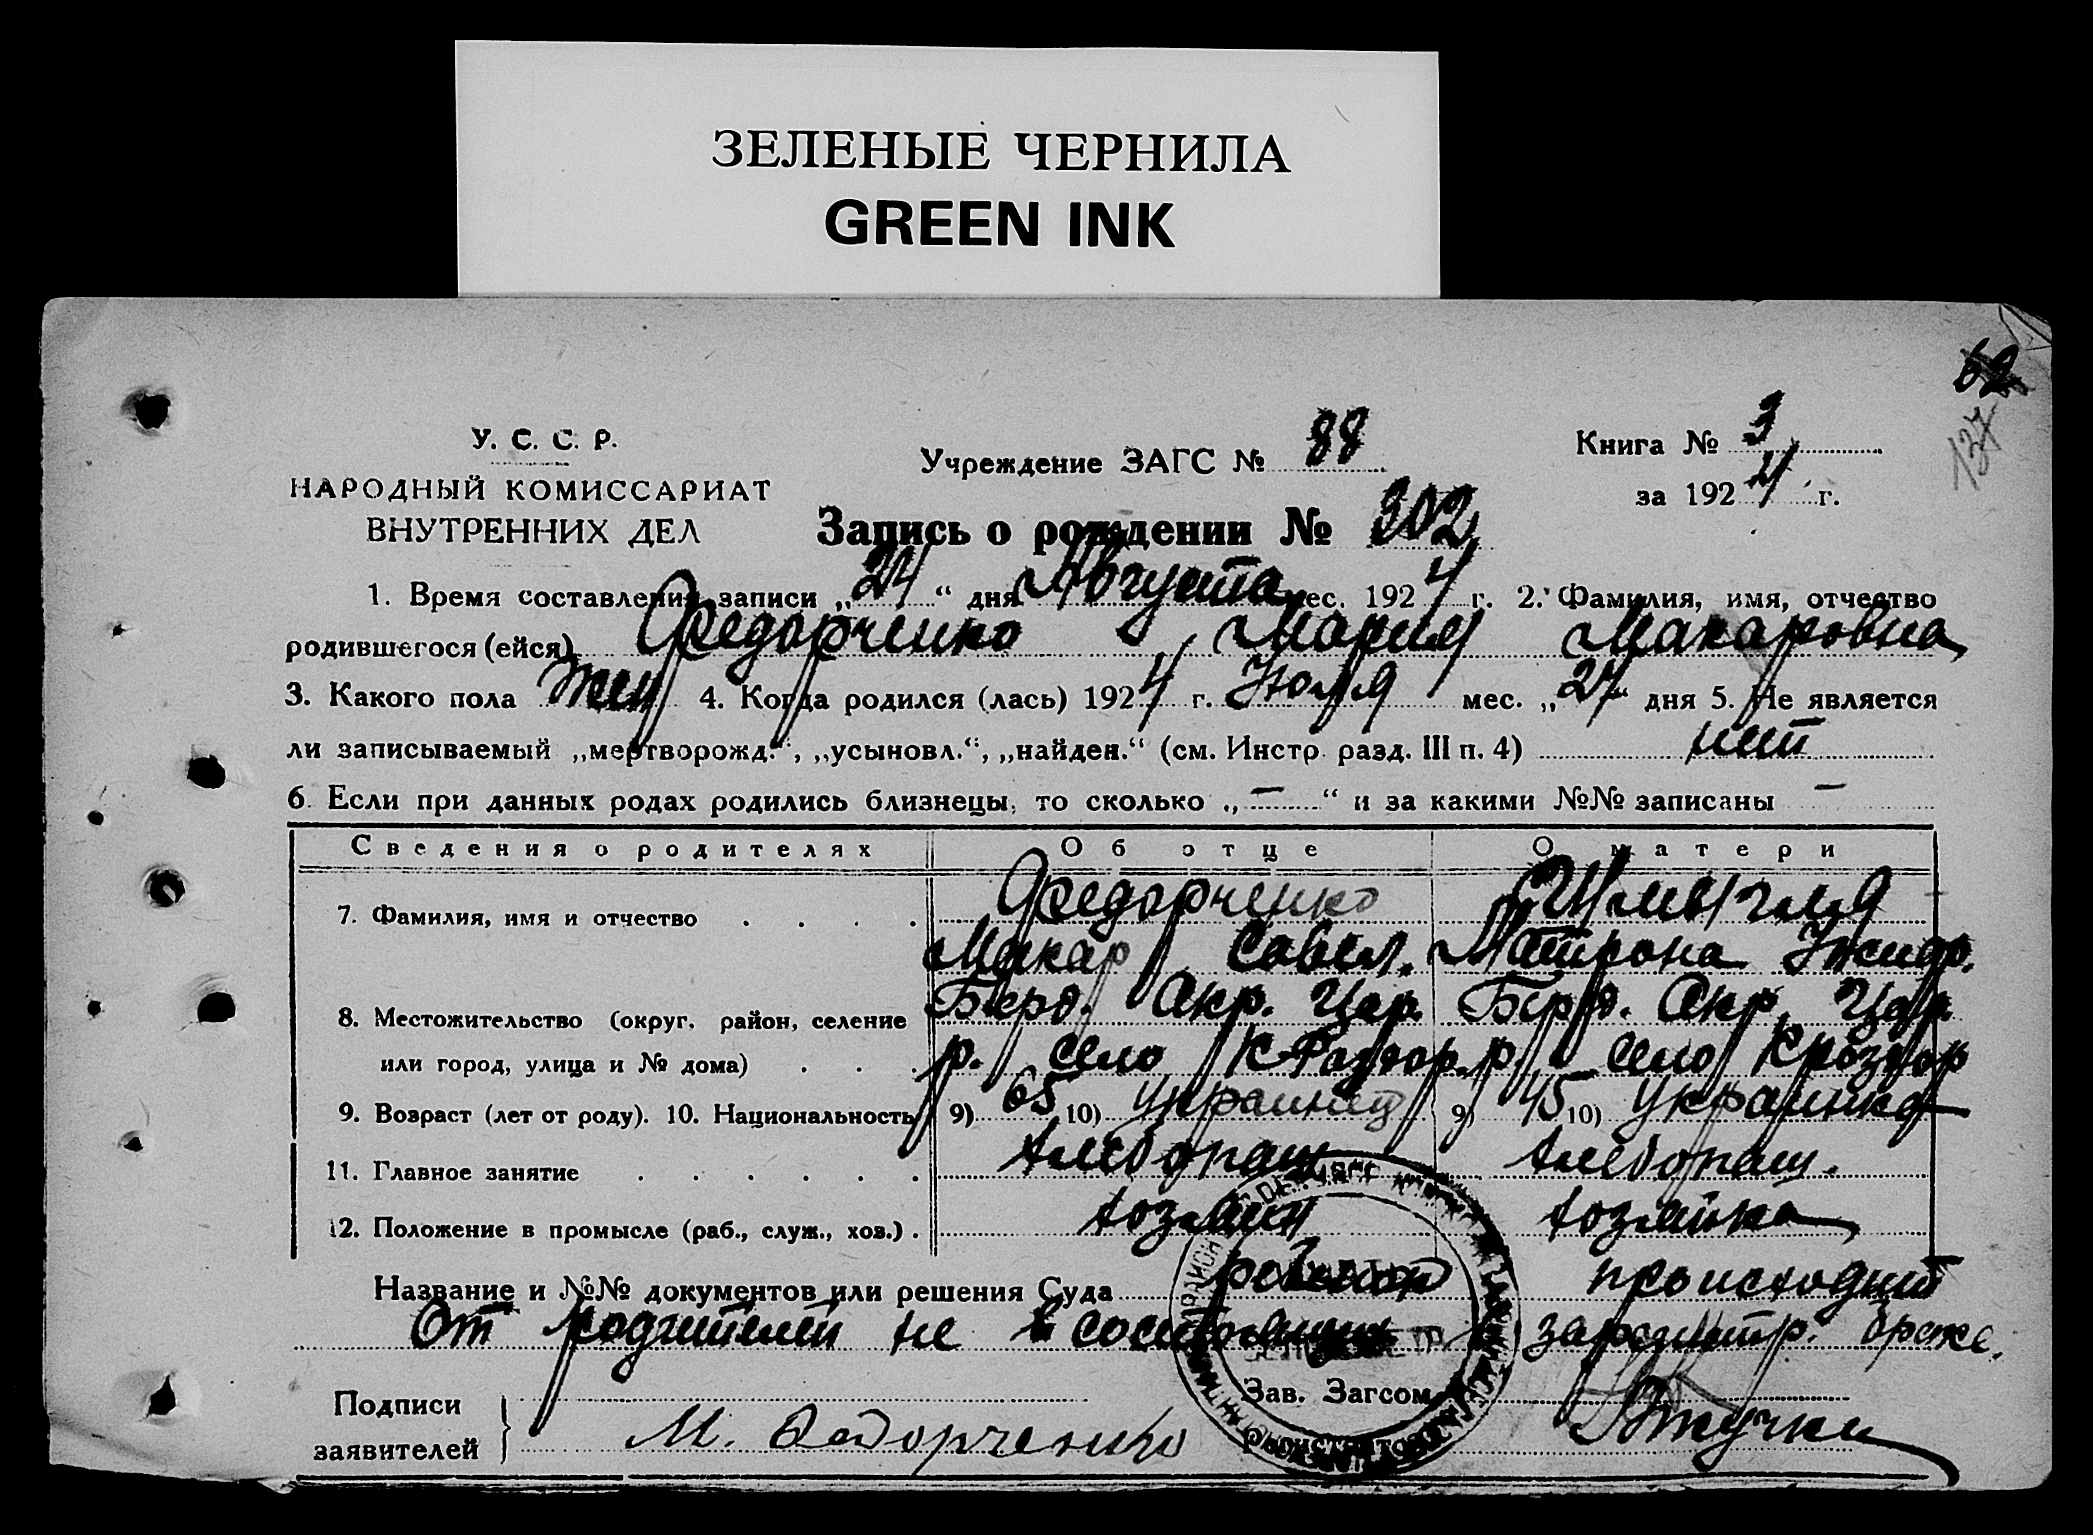 ЗЕЛЕНЫЕ ЧЕРНИЛА
GREEN INK
62
137
У. С. С. Р.
НАРОДНЫЙ КОМИССАРИАТ
ВНУТРЕННИХ ДЕЛ
Учреждение ЗАГС № 88
Книга № 3
за 1924 г.
Запись о рождении № 302
1. Время составления записи „24“ дня Августа мес. 1924 г. 2. Фамилия, имя, отчество
родившегося (ейся) Федорченко Мария Макаровна
3. Какого пола жен 4. Когда родился (лась) 1924 г. Июля мес. „27“ дня 5. Не является
ли записываемый „мертворожд.“, „усыновл.“, „найден.“ (см. Инстр. разд. III п. 4) нет
6. Если при данных родах родились близнецы, то сколько „—“ и за какими №№ записаны —
Сведения о родителях Об отце О матери
7. Фамилия, имя и отчество Федорченко
Макар Савел. Матрона
Берд. Окр. Цар. Берд. Окр. Цар.
8. Местожительство (округ, район, селение
или город, улица и № дома) р. село К-Раздор. р. село К Роздор
9. Возраст (лет от роду). 10. Национальность 9) 65 10) украинец 9) 45 10) украинка
11. Главное занятие хлебопаш хлебопаш.
12. Положение в промысле (раб., служ., хоз.) хозяин хозяйка
Название и №№ документов или решения Суда ребенок происходит
от родителей не в состоящих в зарегистр. браке.
Подписи
заявителей
М. Федорченко
Зав. Загсом